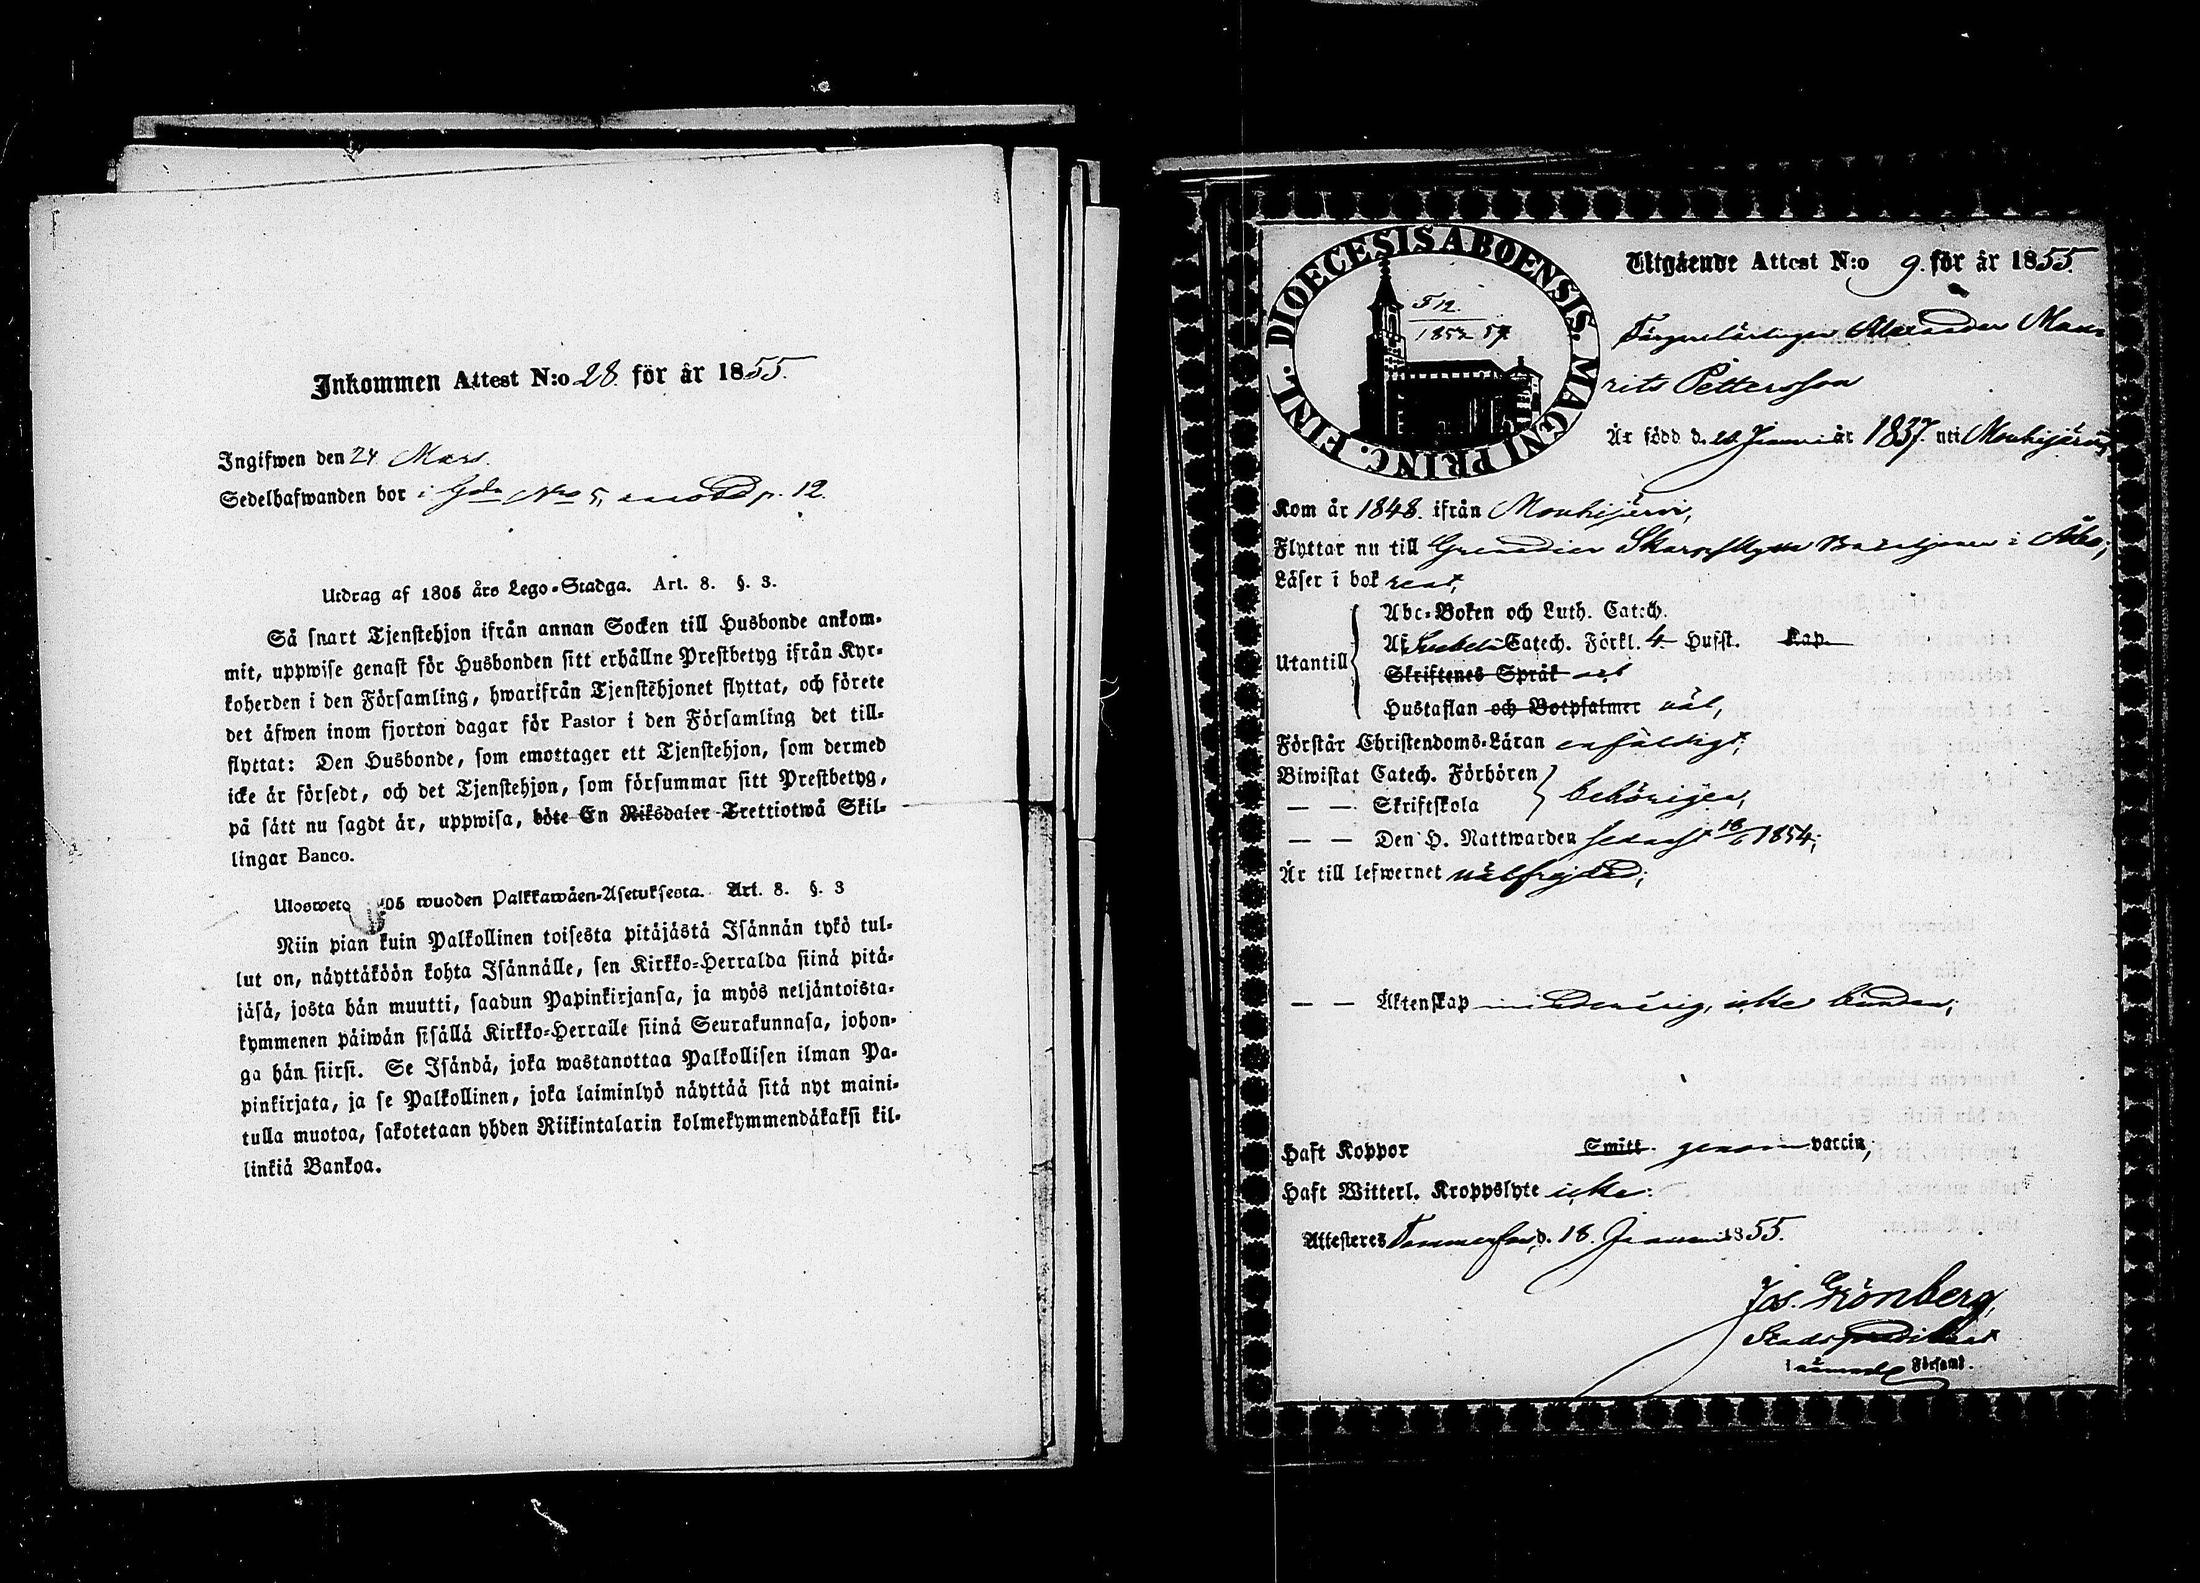 Inkommen Attest N:o 28. för år 1855.
Ingifwen den 24 Mars.
Sedelhafwanden bor i Gdn Nro 5, p. 12.
Utdrag af 1805 års Lego-Stadga. Art. 8. §. 3.
Så snart Tjenstehjon ifrån annan Socken till Husbonde ankom-
mit, uppwise genast för Husbonden sitt erhållne Prestbetyg ifrån Kyr-
koherden i den Församling, hwarifrån Tjenstehjonet flyttat, och förete
det äfwen inom fjorton dagar för Pastor i den Församling det till-
flyttat: Den Husbonde, som emottager ett Tjenstehjon, som dermed
icke är försedt, och det Tjenstehjon, som försummar sitt Prestbetyg,
på sätt nu sagdt är, uppwisa, böte En Riksdaler Trettiotwå Skil-
lingar Banco.
Ulosweto 05 wuoden Palkkawäen-Asetuksesta. Art. 8. §. 3
Niin pian kuin Palkollinen toisesta pitäjästä Isännän tykö tul-
lut on, näyttäköön kohta Isännälle, sen Kirkko-Herralda siinä pitä-
jäsä, josta hän muutti, saadun Papinkirjansa, ja myös neljäntoista-
kymmenen päiwän sisällä Kirkko-Herralle siinä Seurakunnasa, johon-
ga hän siirsi. Se Isändä, joka wastanottaa Palkollisen ilman Pa-
pinkirjata, ja se Palkollinen, joka laiminlyö näyttää sitä nyt maini-
tulla muotoa, sakotetaan yhden Riikintalarin kolmekymmendäkaksi kil-
linkiä Bankoa.
DIOECESIS ABOENSIS. MAGNI PRINC. FINL.
512.
1852 57
Utgående Attest N:o 9. för år 1855.
Färgarelärlingen Alexander Mau-
rits Pettersson
Är född d. Januari år 1837. uti Mouhijärvi,
Kom år 1848. ifrån Mouhijärvi,
Flyttar nu till Grenadier Skarpskytte Bataljonen i Åbo;
Läser i bok rent,
Utantill
Abc-Boken och Luth. Catech.
Af Catech. Förkl. 4 Hufst. Kap.
Skriftenes Språk
Hustaflan och Botpsalmer väl,
Förstår Christendoms-Läran enfäldigt;
Biwistat Catech. Förhören
— — Skriftskola
behörigen,
— — Den H. Nattwarden senast 18/6 1854;
Är till lefwernet välfrejdad;
— — Äktenskap minderårig, icke bunden;
Haft Koppor Smitt. genom vaccin,
Haft Witterl. Kroppslyte icke:
Attesteres Tammerfors, d. 18. Januari 1855.
Jos. Grönberg,
Stadspredikant
i nämnde Församl.